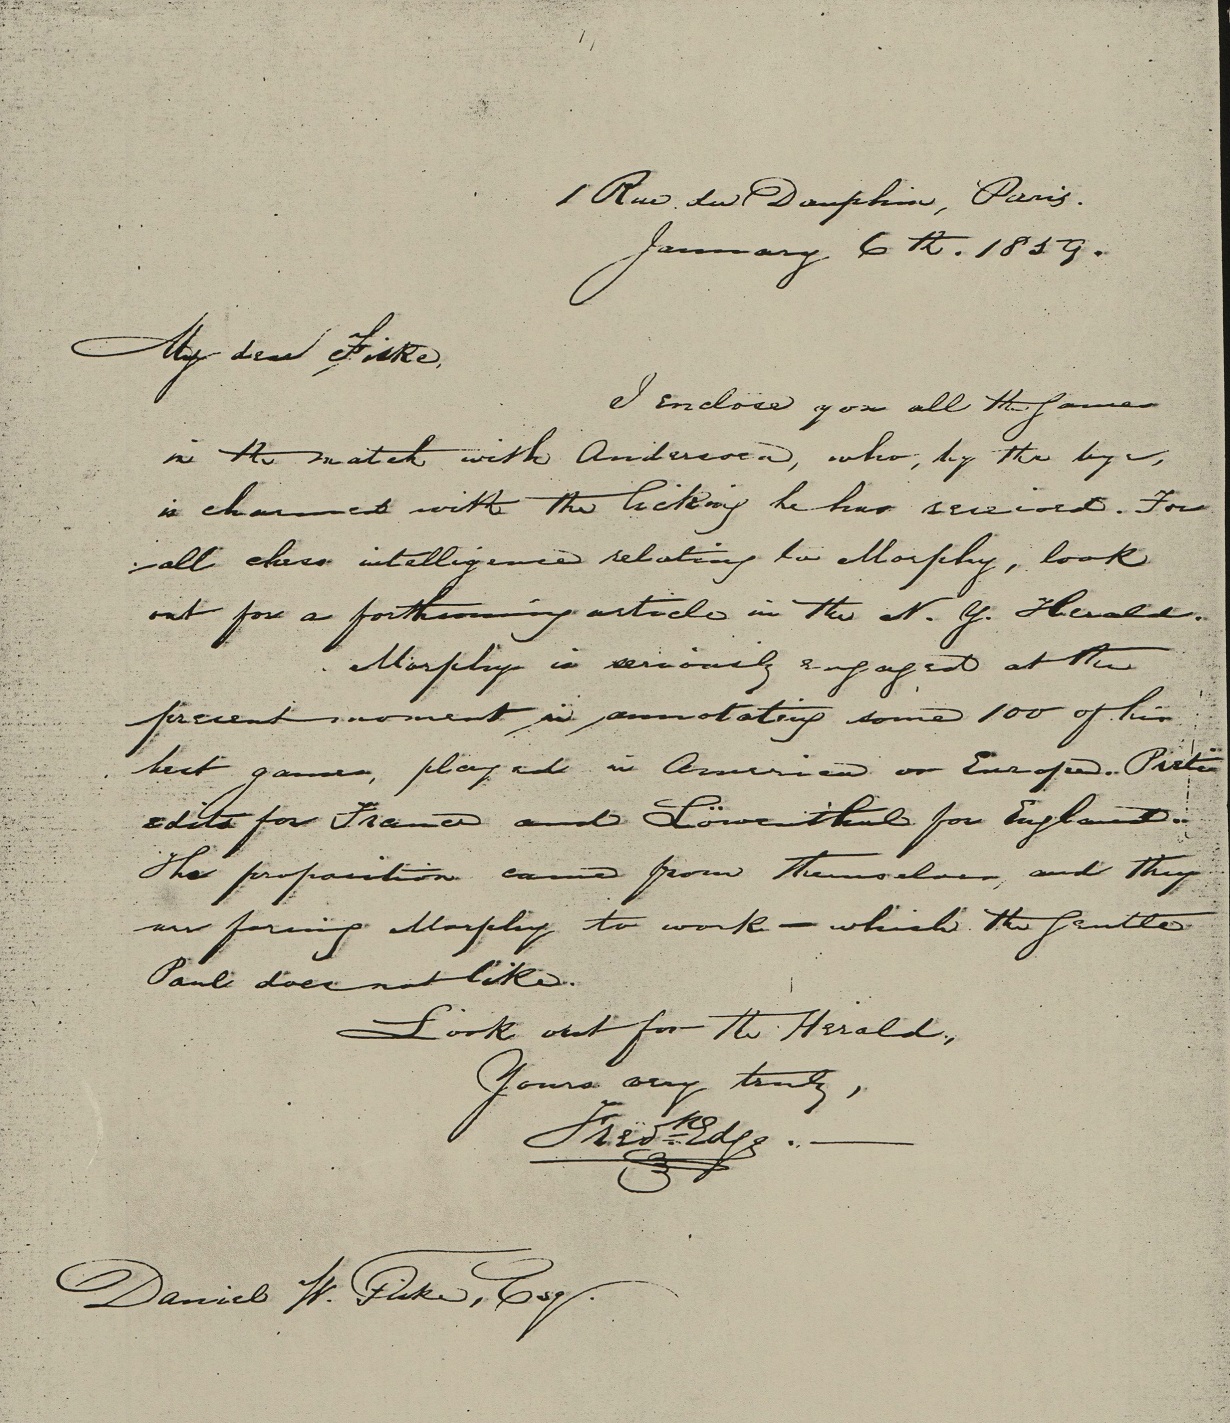 1 Rue du Dauphin, Paris.
January 6th. 1859.
My dear Fiske,
I enclose you all the games
in the match with Anderssen, who, by the bye,
is charmed with the licking he has received. For
all chess intelligence relating to Morphy, look
out for a forthcoming article in the N. Y. Herald.
Morphy is seriously engaged at the
present moment in annotating some 100 of his
best games, played in America or Europe. Préti
edits for France and Löwenthal for England.
The proposition came from themselves, and they
are forcing Morphy to work — which the gentle
Paul does not like.
Look out for the Herald,
Yours very truly,
Fredk Edge.
Daniel W. Fiske, Esq.